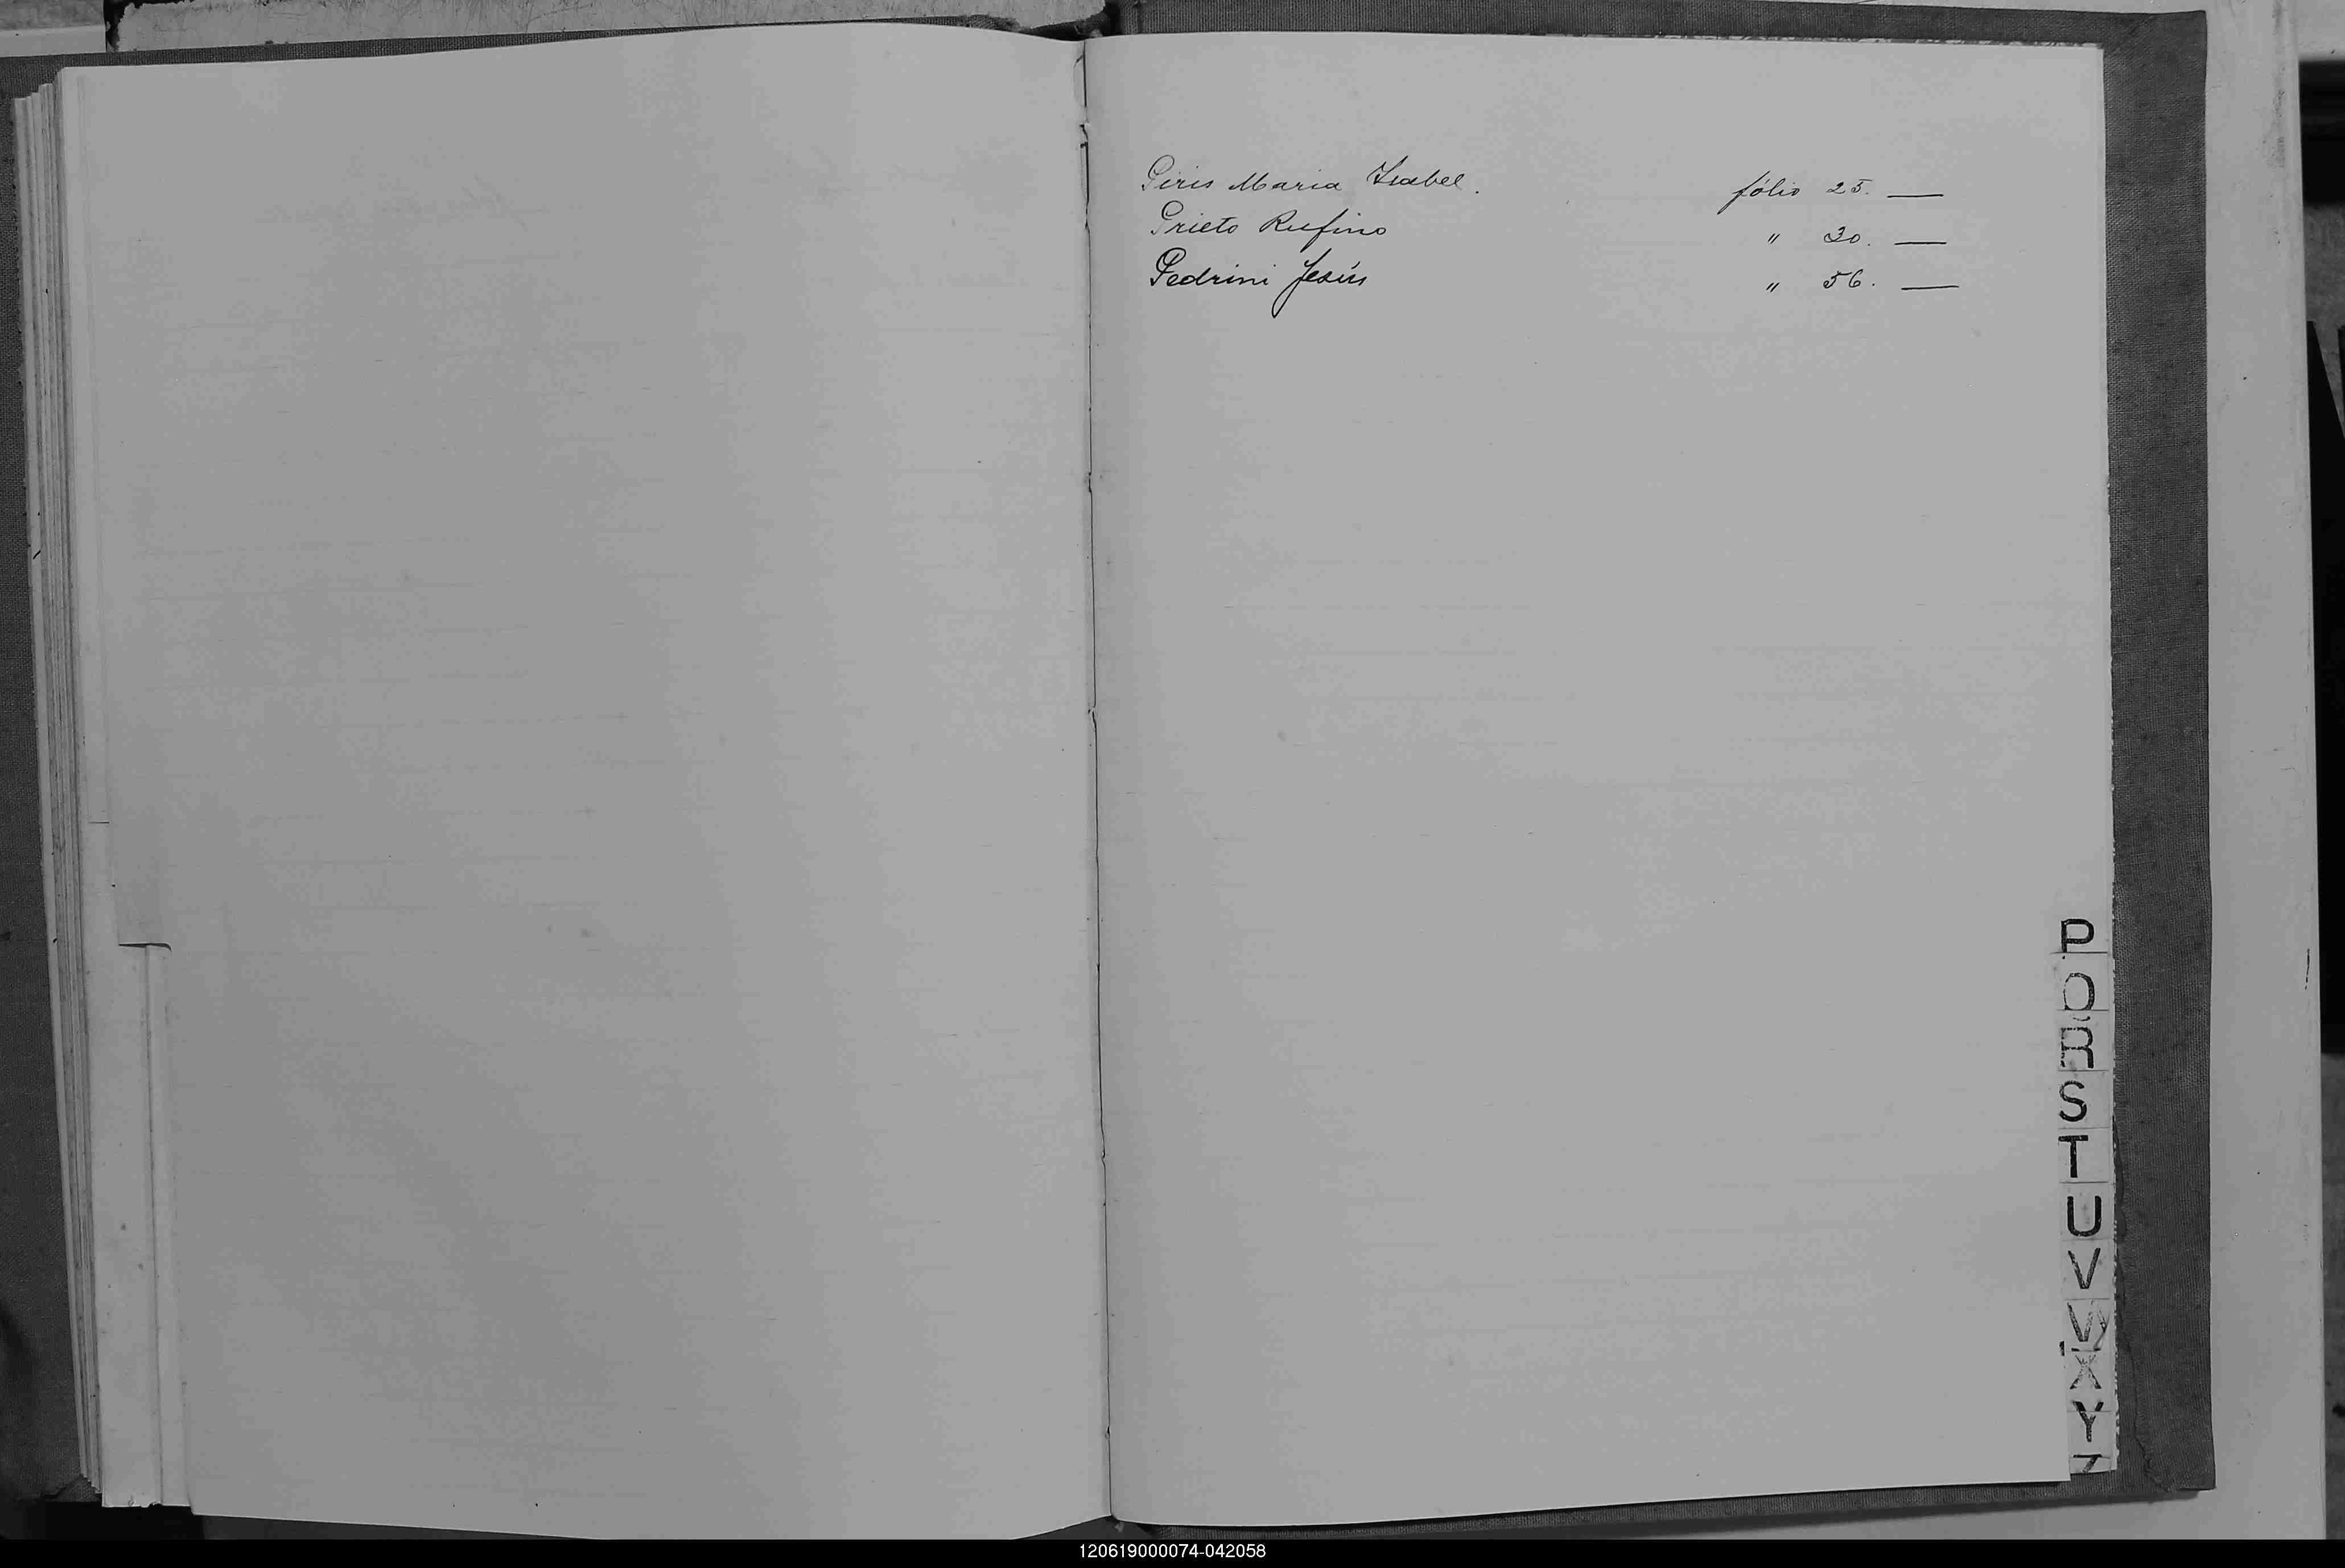 Piris Maria Isabel. fólio 25. —
Prieto Rufino " 30. —
Pedrini Jesús " 56. —
P
Q
R
S
T
U
V
W
X
Y
Z
120619000074-042058